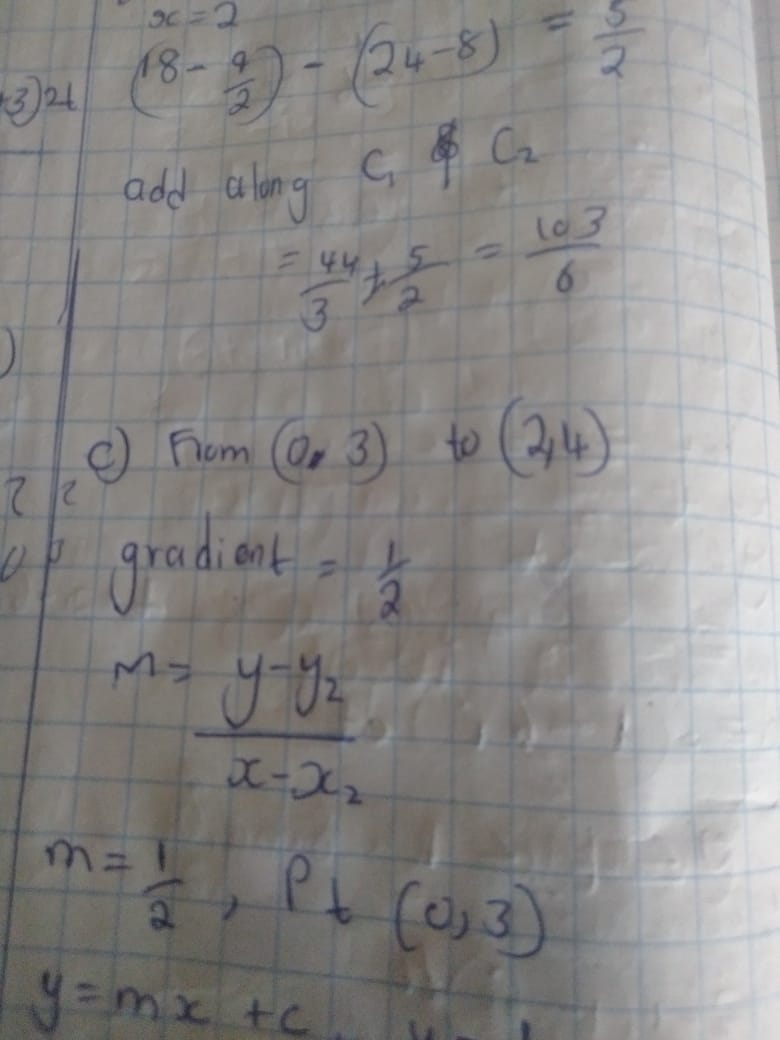 x=2
+3)2t (18 - 9/2) - (24-8) = 5/2
add along C₁ & C₂
= 44/3 + 5/2 = 103/6
)
c) From (0, 3) to (2,4)
gradient = 1/2
m = (y-y₂)/(x-x₂)
m = 1/2 , Pt (0,3)
y = mx + c